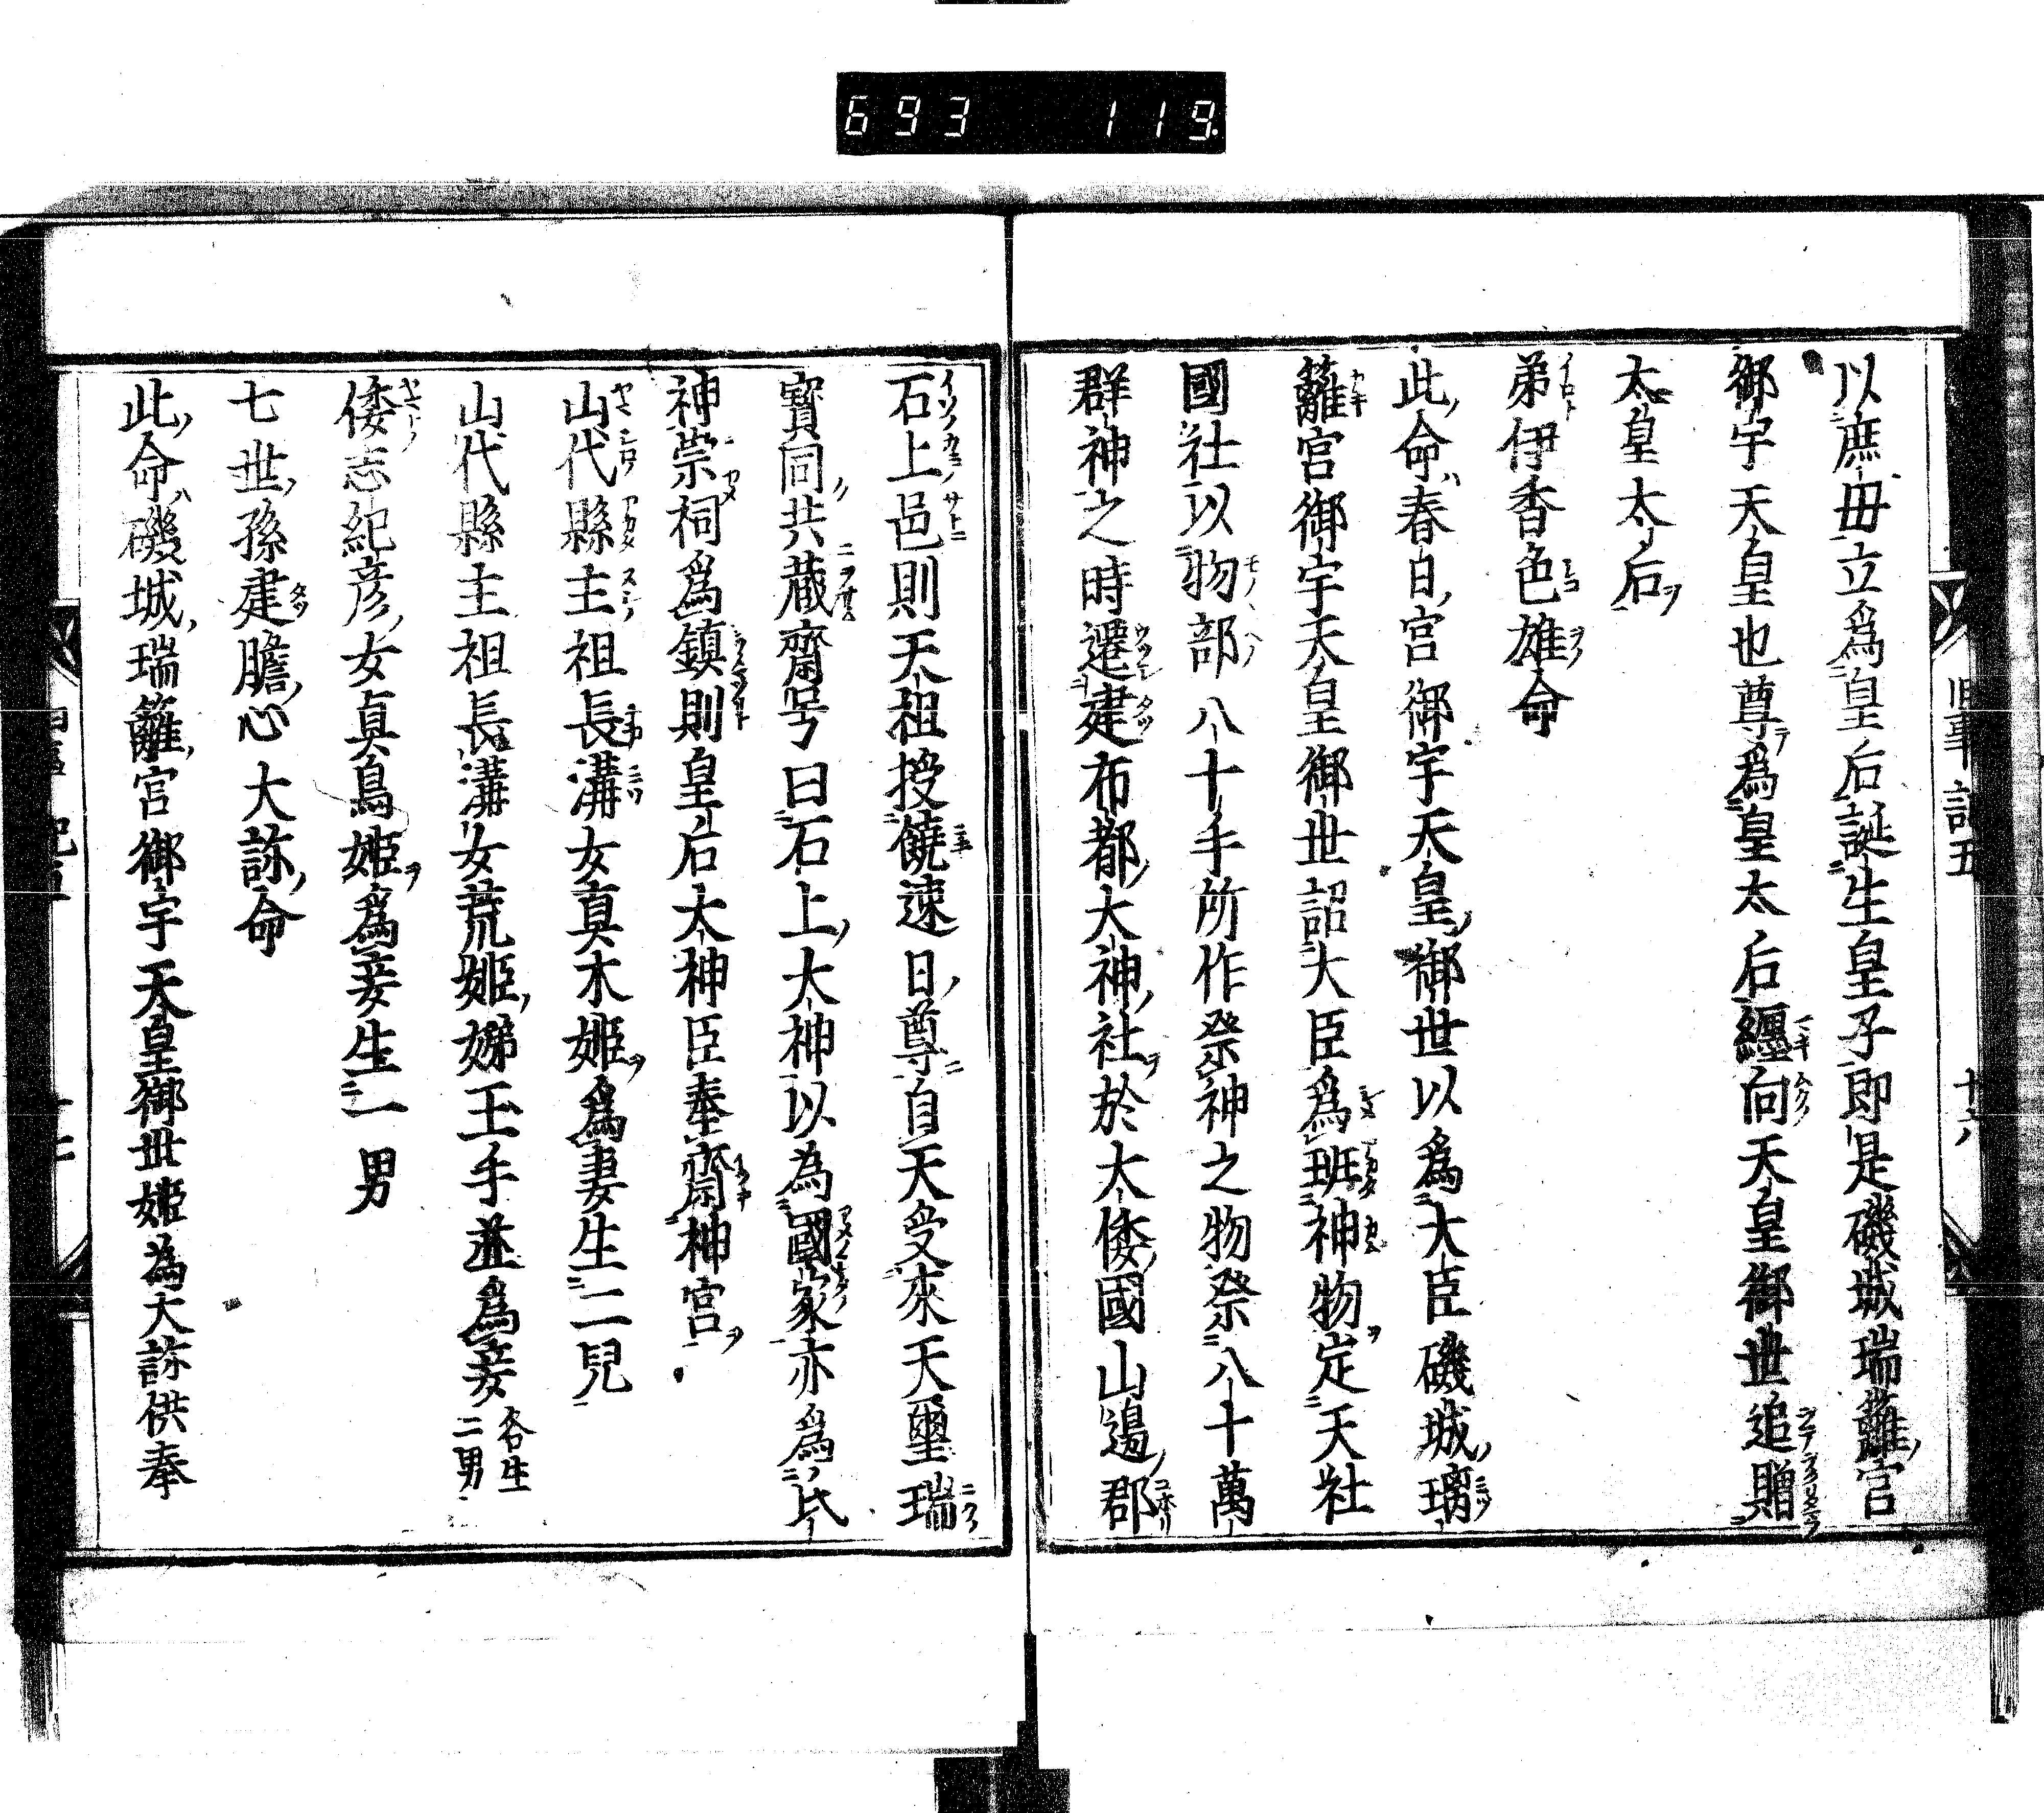 693 119
以庶母立爲皇后誕生皇子即是磯城瑞籬宮
御宇天皇也尊爲皇太后纒向天皇御世追贈
太皇太后
弟伊香色雄命
此命春日宮御宇天皇御世以爲大臣磯城瑞
籬宮御宇天皇御世詔大臣爲班神物定天社
國社以物部八十手所作祭神之物祭八十萬
群神之時遷建布都大神社於大倭國山邊郡
石上邑則天祖授饒速日尊自天受來天璽瑞
寶同共蔵齋号曰石上大神以為國家亦爲氏
神崇祠爲鎮則皇后太神臣奉齋神宮
山代縣主祖長溝女真木姫爲妻生二兒
山代縣主祖長溝女荒姫娣玉手並爲妾各生
二男
倭志紀彦女真鳥姫爲妾生一男
七世孫建膽心大祢命
此命磯城瑞籬宮御宇天皇御世姫為大祢供奉